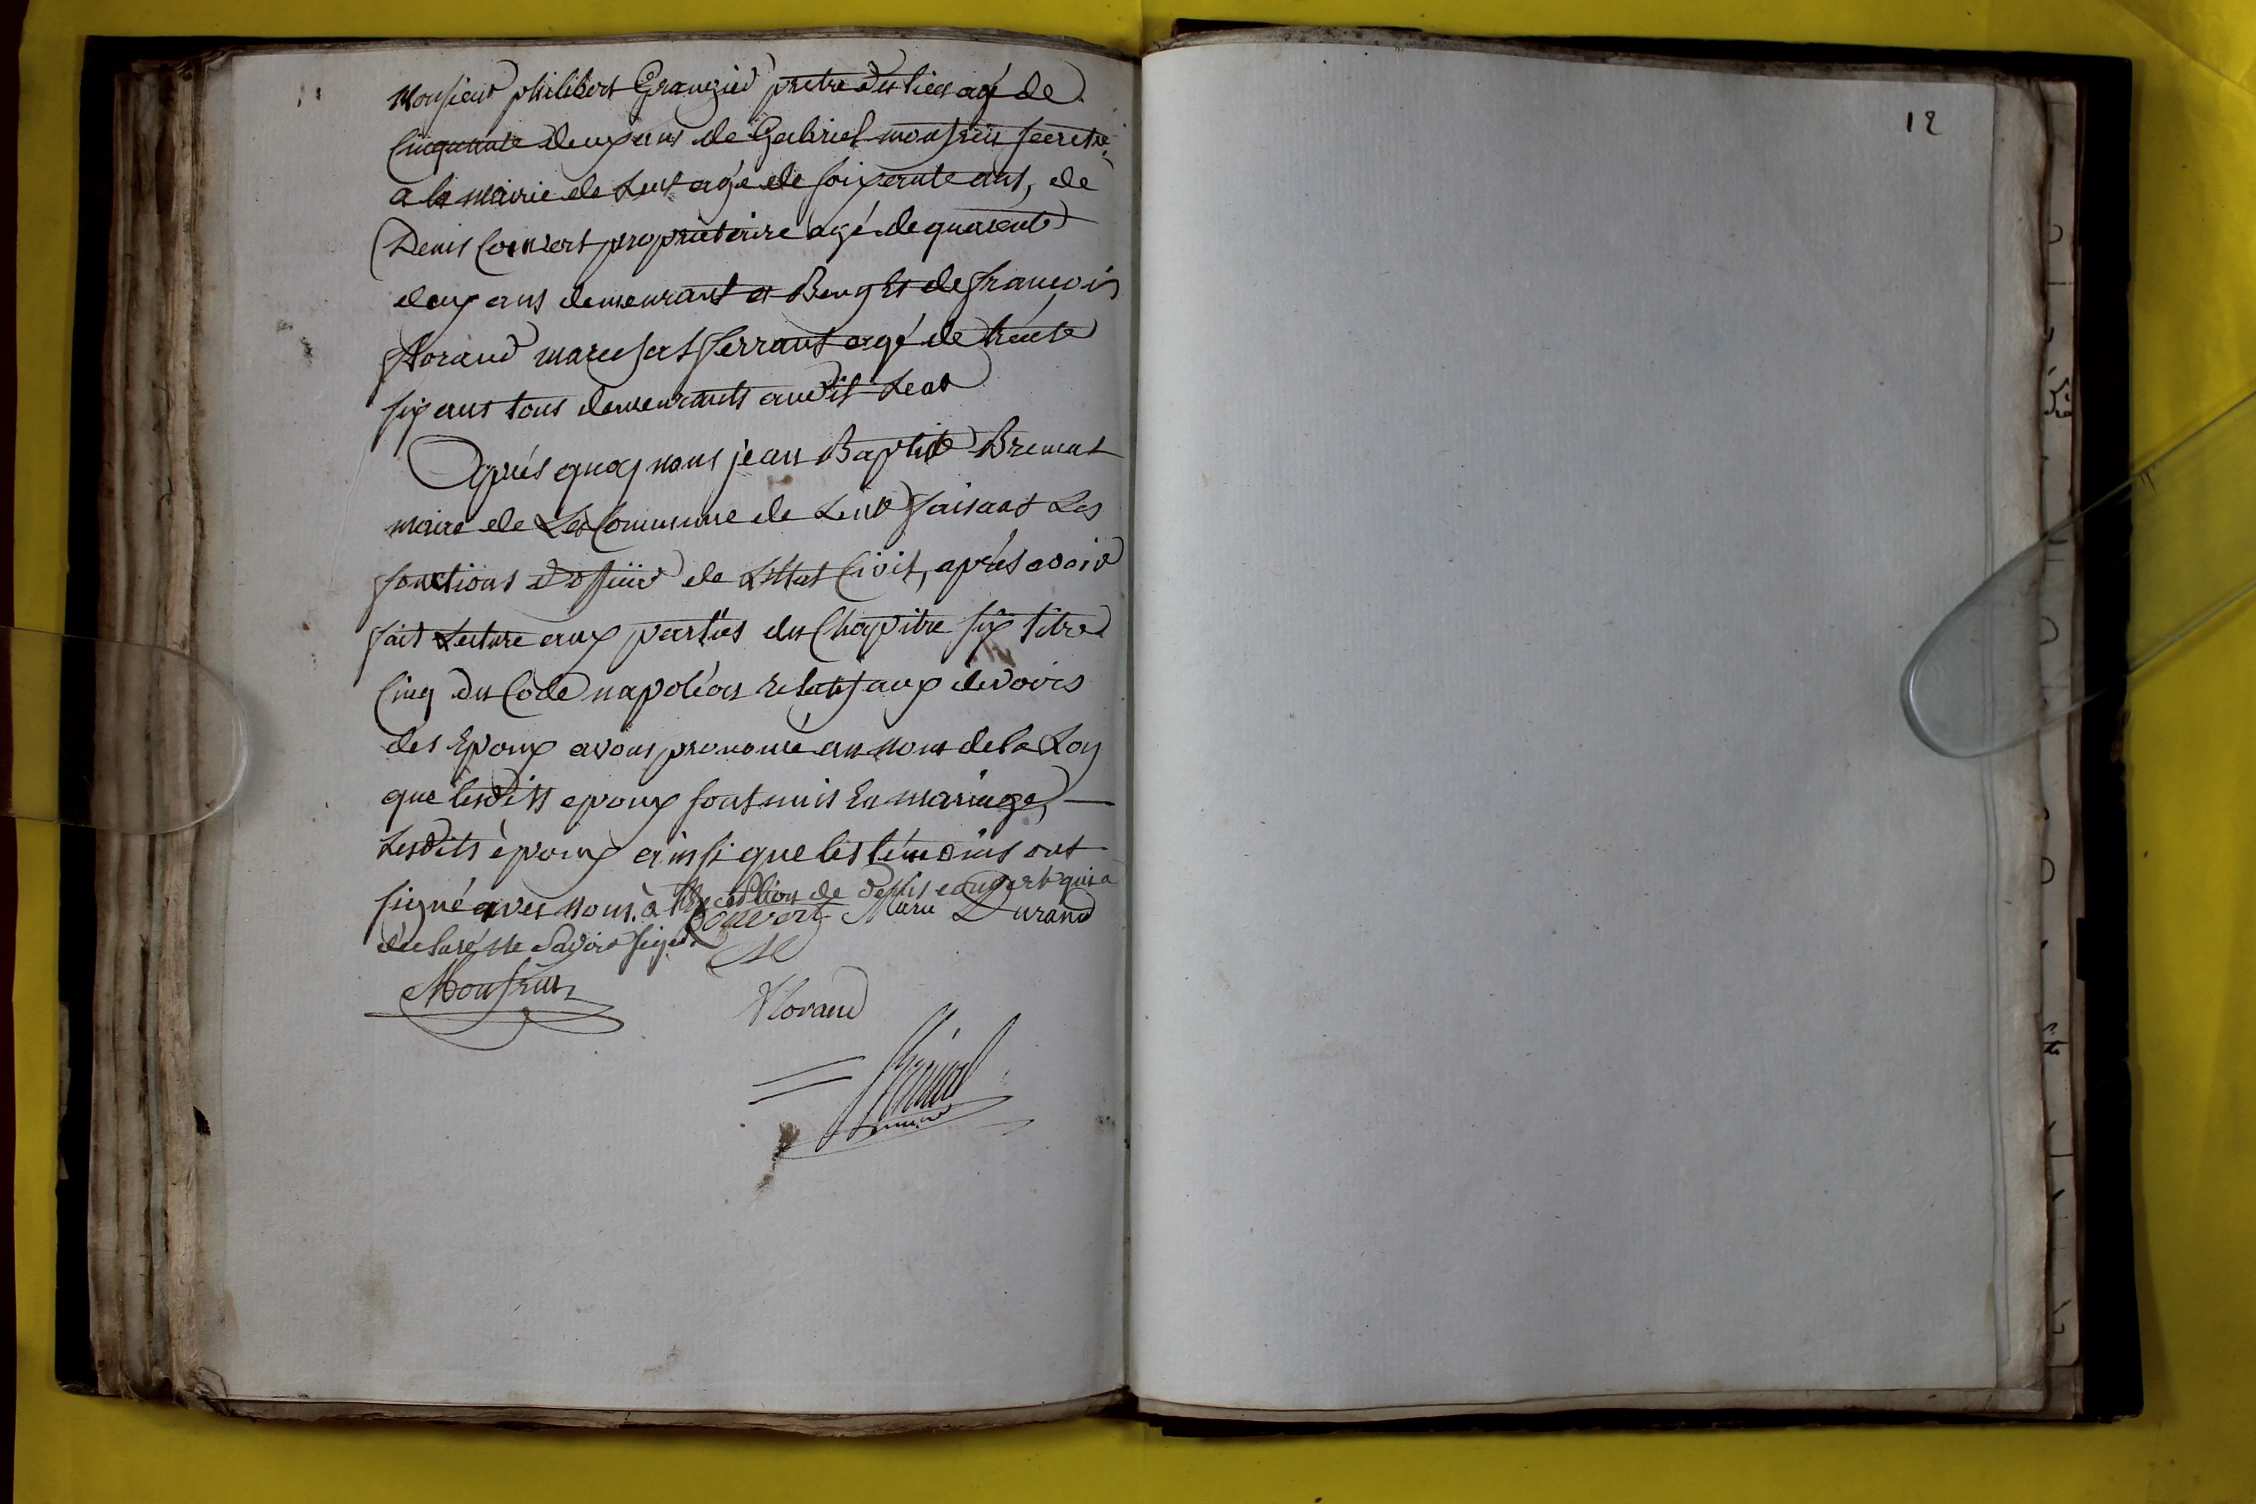 Monsieur philibert Grangier pretre du lieu agé de
Cinquante deux ans de Gabriel monfrein secretre
a la mairie de Lent agé de soixante ans, de
Denis Convert proprietaire agé de quarente
deux ans demeurant a de françois
Morand marechat ferrant agé de trente
six ans tous demeurants audit Lent
Aprés quoy nous jean Baptiste Bremat
maire de La Commune de Lent faisant Les
fonctions d'officier de L'Etat Civil, aprés avoir
fait Lecture aux parties du Chapitre six titre
Cinq du Code napoléon relatif aux devoirs
des Epoux avons prononcé au nom de la Loy
que lesdits epoux sont unis En mariage, —
Lesdits époux ainsi que les témoins ont
signé avec nous. à l'exception de denis convert qui a
déclaré ne savoir signer
Convert Marie Durand
Monfrein
Morand
12